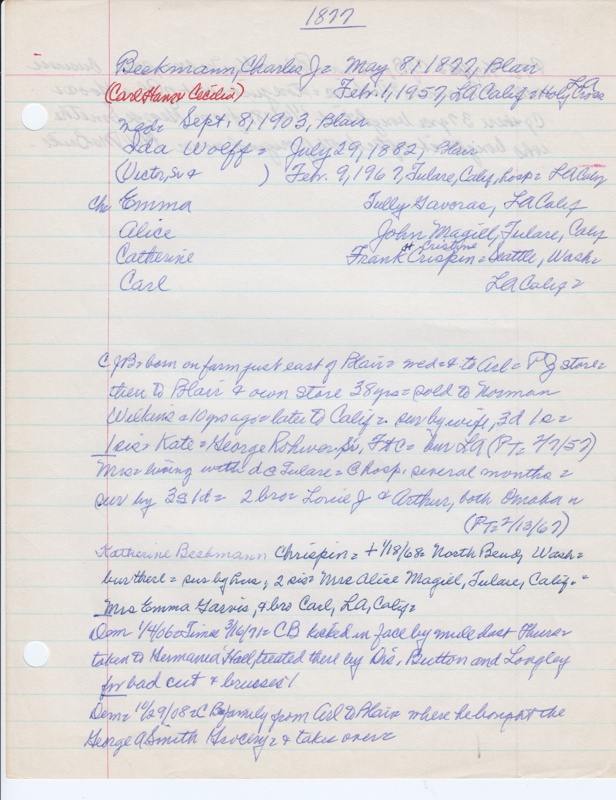 1877
Beckmann, Charles J = May 8, 1877, Blair
(Carl Hans Cecilia) Feb. 1, 1957, LA Calif = Holy Cross LA
wed = Sept. 8, 1903, Blair
Ida Wolff = July 29, 1882, Blair
(Victor, Sr & ) Feb. 9, 1967, Tulare, Calif, hosp = LA Calif
Ch: Emma Tully Gavoras, LA Calif
Alice John Magill, Tulare, Calif
Catherine Frank H Cristine Crispin = Seattle, Wash =
Carl LA Calif =
CJB = born on farm just east of Blair = wed = & to Arl = P J store =
then to Blair & own store 38 yrs = sold to Norman
Wilkins = 10 yrs ago = later to Calif = sur by wife, 3d 1s =
1 sis = Kate = George Rohwer Sr, F&C = bur LA (PT = 2/7/57)
Mrs = living with d Tulare = C hosp. several months =
sur by 3s 1d = 2 bro = Louie J & Arthur, both Omaha n
(PT = 2/13/67)
Katherine Beckmann Chrispin = + 1/18/68 = North Bend, Wash =
bur there = sur by hus, 2 sis = Mrs Alice Magill, Tulare, Calif. =
Mrs Emma Garvis, & bro Carl, LA, Calif =
Dem 1/4/06 = Times 3/16/71 = CB kicked in face by mule last Thurs =
taken to Germania Hall, treated there by Drs, Button and Longley
for bad cut & bruises!
Dem = 10/29/08 = C B & family from Arl to Blair where he bought the
George A Smith Grocery = & takes over =